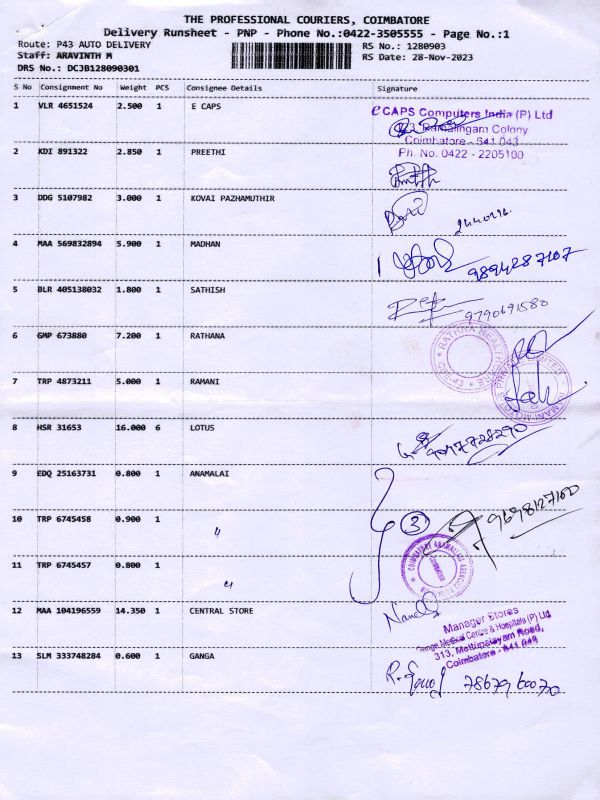 THE PROFESSIONAL COURIERS, COIMBATORE
Delivery Runsheet - PNP - Phone No.:0422-3505555 - Page No.:1
Route: P43 AUTO DELIVERY RS No.: 1280903
Staff: ARAVINTH M RS Date: 28-Nov-2023
DRS No.: DCJB128090301
S No Consignment No Weight PCS Consignee Details Signature
1 VLR 4651524 2.500 1 E CAPS
eCAPS Computers India (P) Ltd
Ramalingam Colony
Coimbatore - 641 043
Ph. No. 0422 - 2205100
2 KDI 891322 2.850 1 PREETHI
3 DDG 5107982 3.000 1 KOVAI PAZHAMUTHIR
4 MAA 569832894 5.900 1 MADHAN
9894287107
5 BLR 405138032 1.800 1 SATHISH
9790691580
6 GMP 673880 7.200 1 RATHANA
RATHNA HEALTH
7 TRP 4873211 5.000 1 RAMANI
8 HSR 31653 16.000 6 LOTUS
9 EDQ 25163731 0.800 1 ANAMALAI
10 TRP 6745458 0.900 1 "
3
9698127100
11 TRP 6745457 0.800 1 "
12 MAA 104196559 14.350 1 CENTRAL STORE
Manager Stores
Medical Centre & Hospitals (P) Ltd
313, Mettupalayam Road,
Coimbatore - 641 043
13 SLM 333748284 0.600 1 GANGA
7867960070